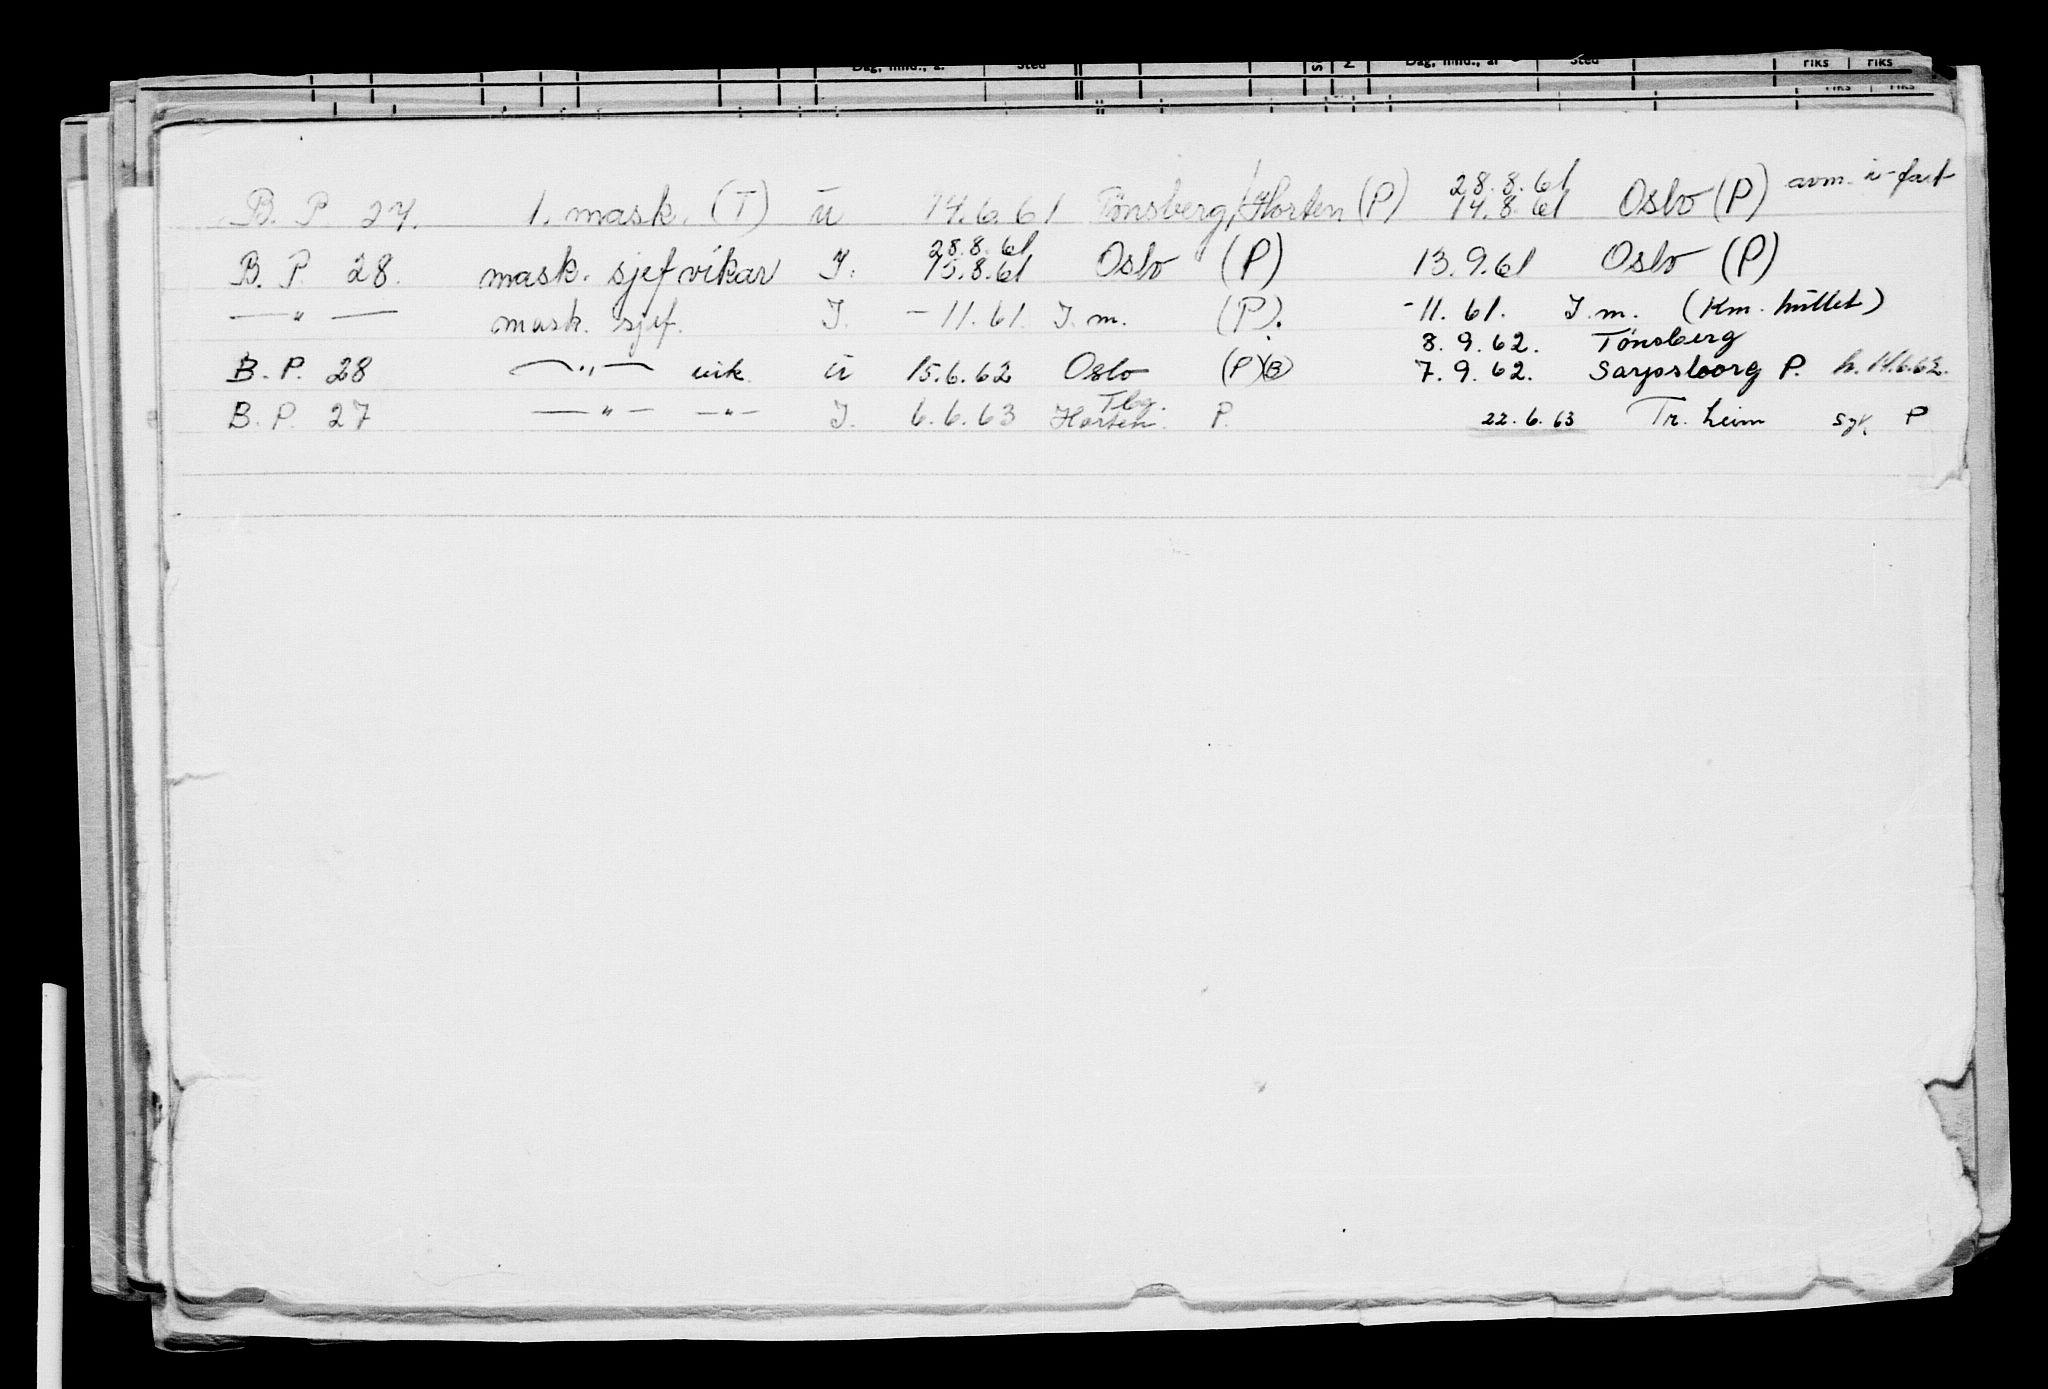 Dag, mnd., å. Sted S N Dag, mnd., år Sted riks riks
riks riks
28.8.61
B. P. 27. 1. mask. (T) u 14.6.61 Tönsberg/Horten (P) 14.8.61 Oslo (P) avm. u-fart
28.8.61
B. P. 28. mask. sjef vikar J. 15.8.61 Oslo (P) 13.9.61 Oslo (P)
—"— mask. sjef. J. -11.61. J.m. (P). -11.61. J.m. (Km. hüllet)
8.9.62. Tönsberg
B. P. 28 —"— vik. u 15.6.62 Oslo (P)(B) 7.9.62. Sarpsborg P. h. 14.6.62.
Tbg.
B. P. 27 —"— —"— J. 6.6.63 Horten. P. 22.6.63 Tr. heim syk P